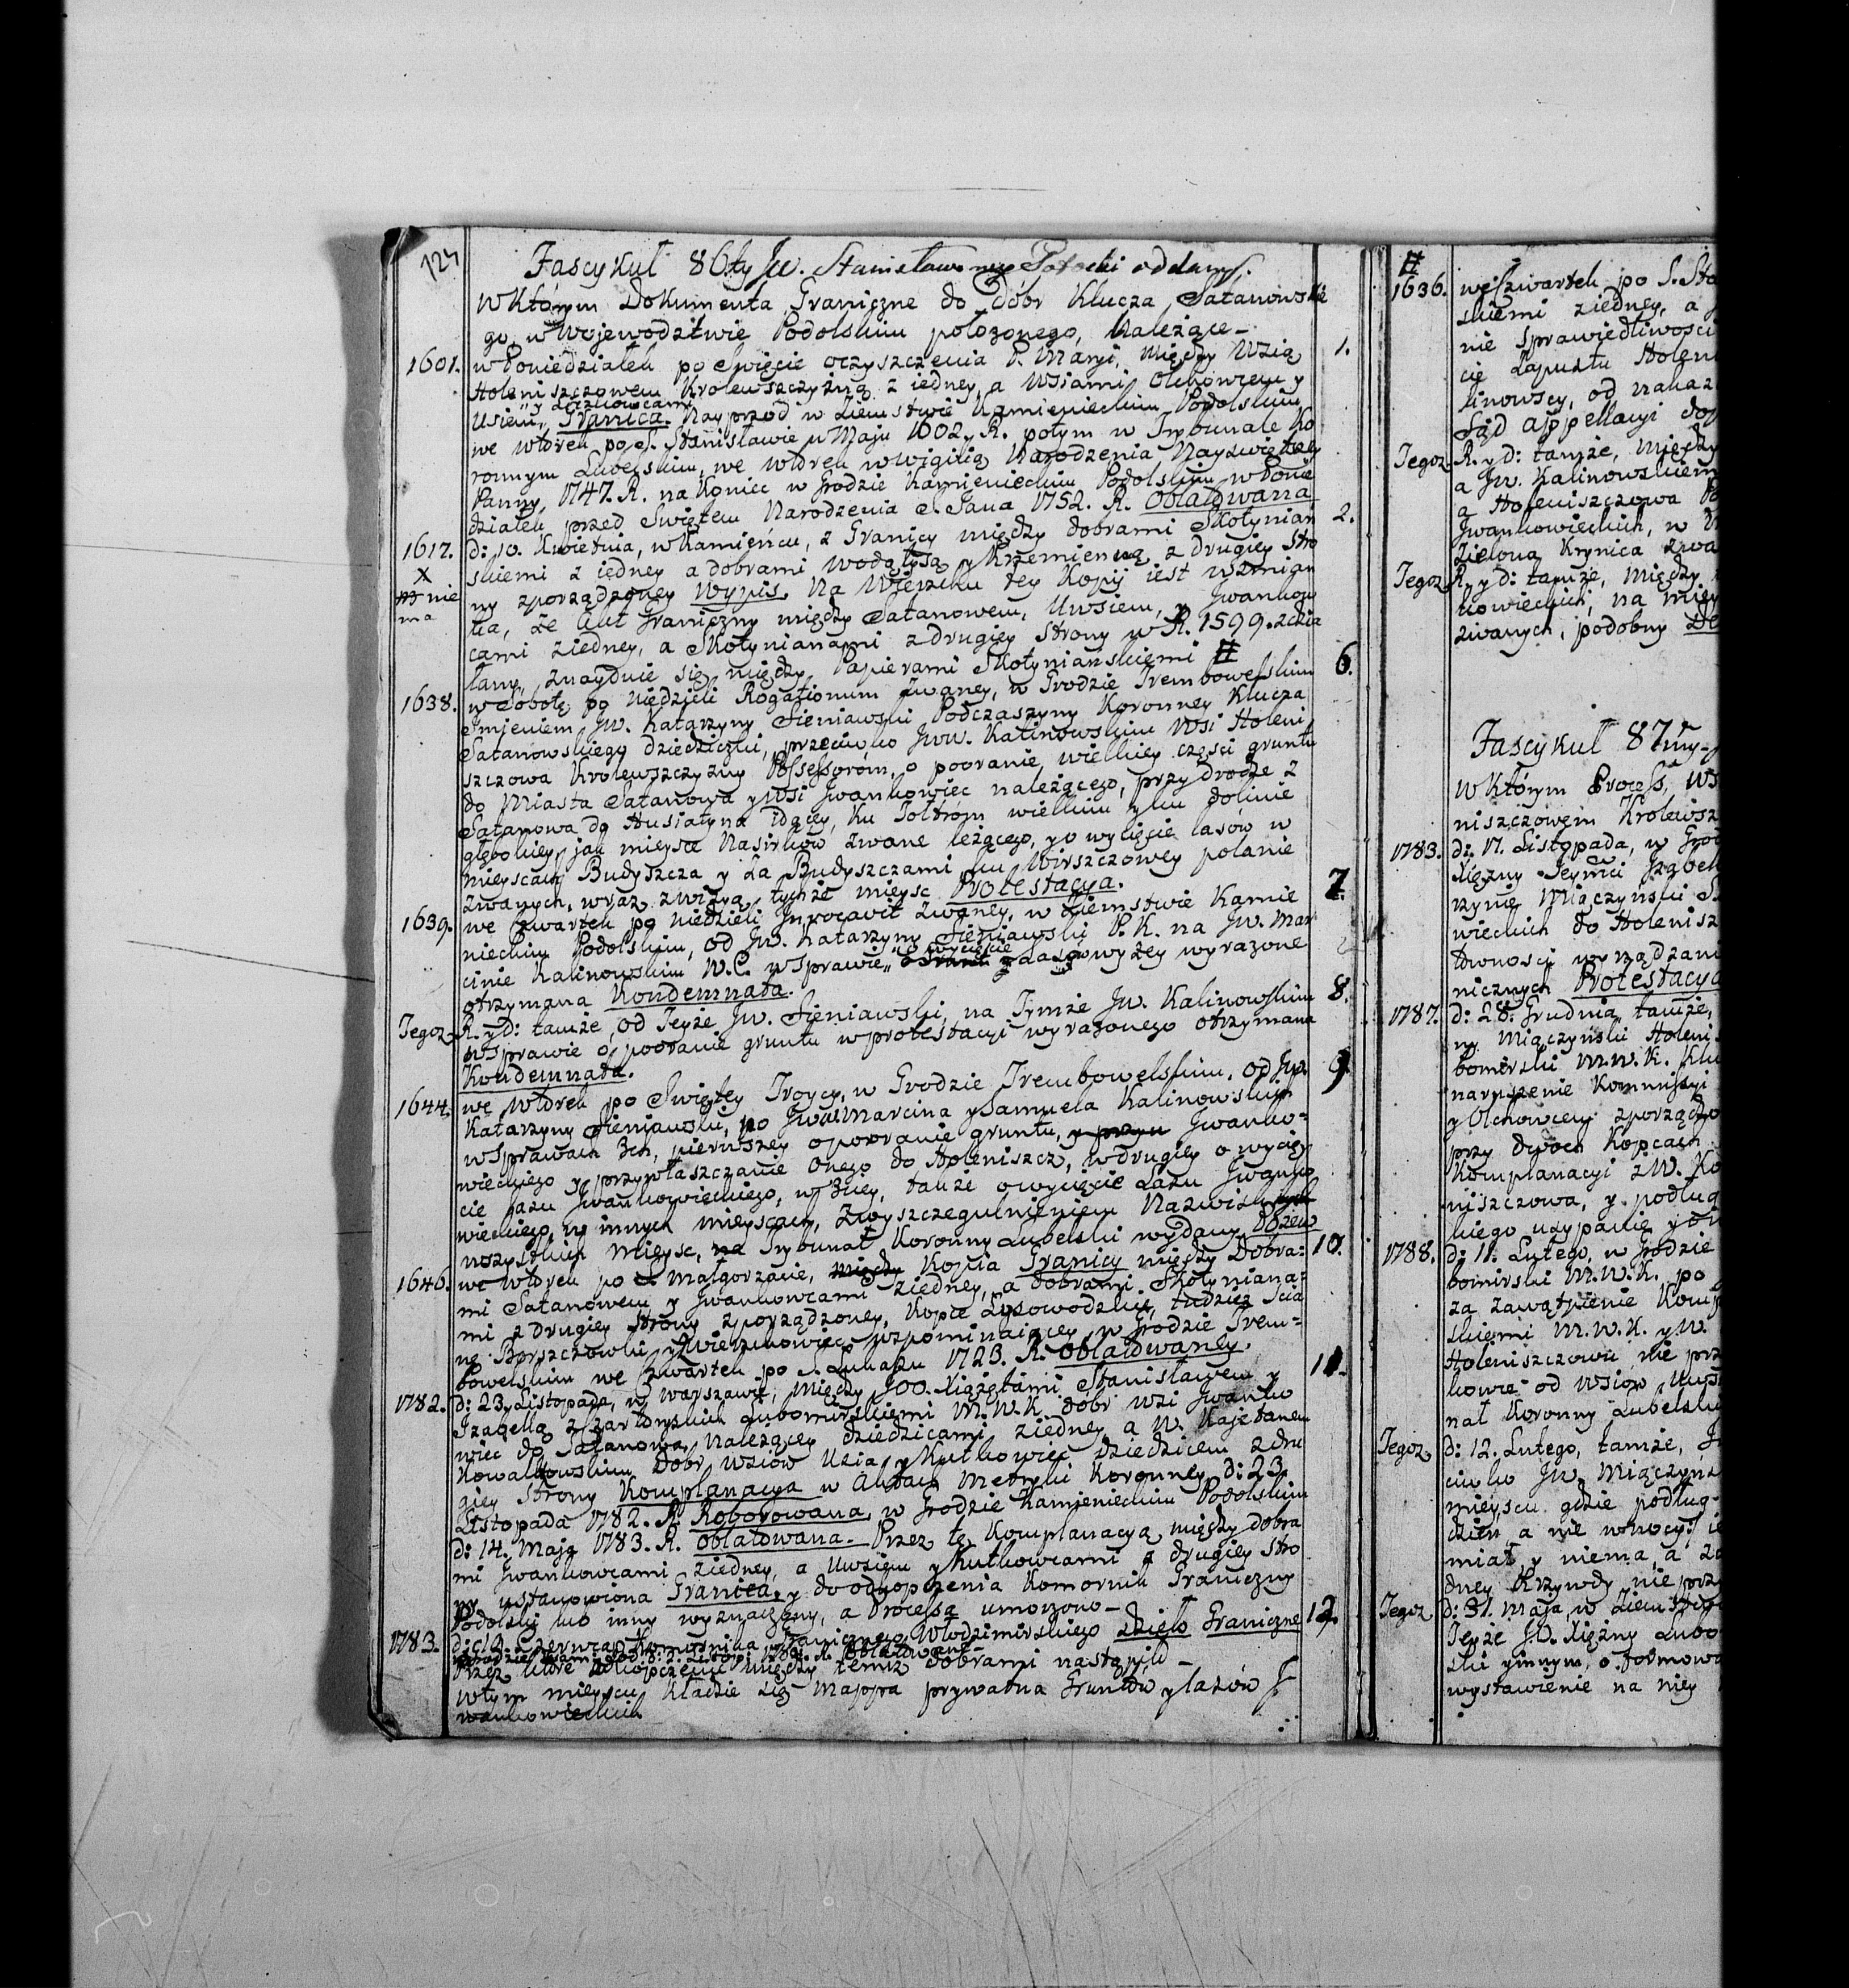 124
Fascykuł 86ty JW. Stanisławowey Potocki oddany.
w Którym Dokumenta Graniczne do Dóbr Klucza Satanowskie
go, w Wojewodztwie Podolskim położonego, Należące_
1601. w Poniedziałek po Swięcie oczyszczenia P. Maryi, między Wsią 1.
Holeniszczowem Krolewszczyzną z iedney, a Wsiami Olchowcem y
y Laznowcami
Usiem, Granica. Nayprzod w Ziemstwie Kamienieckim Podolskim
we Wtorek po S. Stanisławie w Maju 1602. R. potym w Trybunale Ko
ronnym Lubelskim, we Wtorek w Wigilią Narodzenia Nayswiętszey
Panny, 1747. R. na Koniec w Grodzie Kamienieckim Podolskim w Ponie
działek przed Swiętem Narodzenia S. Jana 1752. R. Oblatowana
1617. d: 10. Kwietnia, w Kamieńcu, z Granicy między dobrami Skotynian 2.
X
nie
ma
skiemi z iedney a dobrami Wodątysą y Krzemienną z drugiey stro
ny zporządzoney Wypis. Na Wierzchu tey Kopij iest wzmian
ka, że Akt Graniczny między Satanowem, Uwsiem, y Jwankow
cami z iedney, a Skotynianami z drugiey strony w R. 1599. zdzia
łany, znayduie się między Papierami Skotyniańskiemi #
1638. w Sobotę po Niedzieli Rogationum zwaney, w Grodzie Trembowelskim 6.
Jmieniem JW. Katarzyny Sieniawski Podczaszyny Koronney Klucza
Satanowskiego dziedziczki, przeciwko JWW. Kalinowskim Wsi Holeni
szczowa Krolewszczyzny Possessorom, o pooranie wielkiey części gruntu
do Miasta Satanowa y Wsi Jwankowiec należącego, przy drodze z
Satanowa do Husiatyna idącey, Ku Toltrom wielkim y ku dolinie
głębokiey, jak mieysce Nasirkow zwane leżącego, y o wycięcie lasów w
mieyscach Budyszcza y Za Budyszczami ku Wirszczowey polanie
zwanych, wraz z wizyą tychże mieysc Protestacya.
1639. we Czwartek po Niedzieli Jnvocavit zwaney, w Ziemstwie Kamie 7.
nieckim Podolskim, od JW. Katarzyny Sieniawski P. K. na JW. Mar
cinie Kalinowskim W. C. w Sprawie o wycięcie lasów wyżey wyrażone
otrzymana Kondemnata.
Tegoż R. y d: tamże, od Teyże JW. Sieniawski, na Tymże JW. Kalinowskim 8.
w Sprawie o pooranie gruntu w protestacyi wyrażonego otrzymana
Kondemnata.
1644. we Wtorek po Swiętey Troycy, w Grodzie Trembowelskim, od JW. 9
Katarzyny Sieniawski, po JWW. Marcina y Samuela Kalinowskich
w Sprawach 3ch, pierwszey o pooranie gruntu, y przyw Jwanko=
wieckiego y przywłaszczanie onego do Holeniszcz, w drugiey o wycię
cie lasu Jwankowieckiego, w 3ciey, także o wycięcie Lasu Jwanko
wieckiego, w innych mieyscach, z wyszczegulnieniem Nazwisk tych
wszystkich mieysc, na Trybunał Koronny Lubelski wydany Pozew
1646. we Wtorek po S. Małgorzacie, między Kopia Granicy między Dobra= 10.
mi Satanowem y Jwankowcami z iedney, a dobrami Skotyniana=
mi z drugiey strony zporządzoney, Kopce Łysowodzkie, tudzież Scia
nę Borszczowki y Zwierzchowiec wzpominaiącey, w Grodzie Trem=
bowelskim we Czwartek po S. Łukaszu 1723. R. Oblatowaney.
1782. d: 23. Listopada, w Warszawie, między JOO. Xiążętami Stanisławem y 11.
Jzabellą z Czartoryskich Lubomirskiemi M.W.K. dobr Wsi Jwanko
wiec do Satanowa należącey dziedzicami z iedney, a W. Kajetanem
Kowalkowskim Dobr Wsiow Usia y Kutkowiec dziedzicem z dru
giey Strony Komplanacya w Aktach Metryki Koronney d: 23.
Listopada 1782. R. Roborowana, w Grodzie Kamienieckim Podolskim
d: 14. Maja 1783. R. oblatowana. Przez tę Komplanacyą między Dobra
mi Jwankowcami z iedney, a Uwsiem y Kutkowcami z drugiey stro
ny ustanowiona Granica, y do odkopczenia Komornik Graniczny
Podolski lub inny wyznaczony, a Processa umorzono_
1783. Czerwca, Komornika Granicznego Włodzimirskiego Dzieło Graniczne 12.
Przez które odkopczenie między temiż dobrami nastąpiło_
w tym mieyscu kładzie się Mappa prywatna Gruntow y lasów J
wankowieckich
#
1636. we Czwartek po S. Sta
skiemi z iedney, a
nie Sprawiedliwosci
cię Zapustu Holeni
linowscy, od nakaz
Sąd appellacyi do
Tegoż R. y d: tamże, między
a JW. Kalinowskiem
a Holeniszczowa
Jwankowieckich, w
Zielona Krynica zwa
Tegoż R. y d: tamże, między
kowieckich, na miey
zwanych, podobny De
Fascykuł 87my
w Którym Process, Ws
niszczowem Krolewsz
1783. d: 17. Listopada, w Grod
Xiężny Jeymci Jzabell
rzynie Miączyński
wieckich do Holenisz
towności wyrządzani
nicznych Protestacya
1787. d: 28. Grudnia tamże,
ny Miączyński Holeni
bomirski M.W.K. Klu
naruszenie Kommissyi
y Olchowcem zporządzo
przy dwoch Kopcach
Komplanacyi z W. Ko
niszczowa, y podług
kiego usypanie y
1788. d: 11. Lutego, w Grodzie
bomirski M.W.K. po
za zawątpienie Komp
skiemi M.W.K. y W.
Holeniszczowa, nie prz
kowie od Wsiow Uws
nał Koronny Lubelski
Tegoż d: 12. Lutego, tamże,
ciwko JW. Miączyńs
mieyscu gdzie podług
dzień, a nie w nocy,
miał y niema, a
dney Krzywdy nie prz
Tegoż d: 31. Maja, w Ziemstwie
Teyże J.O. Xiężny Lubo
ski y innym, o formowa
wystawienie na niey